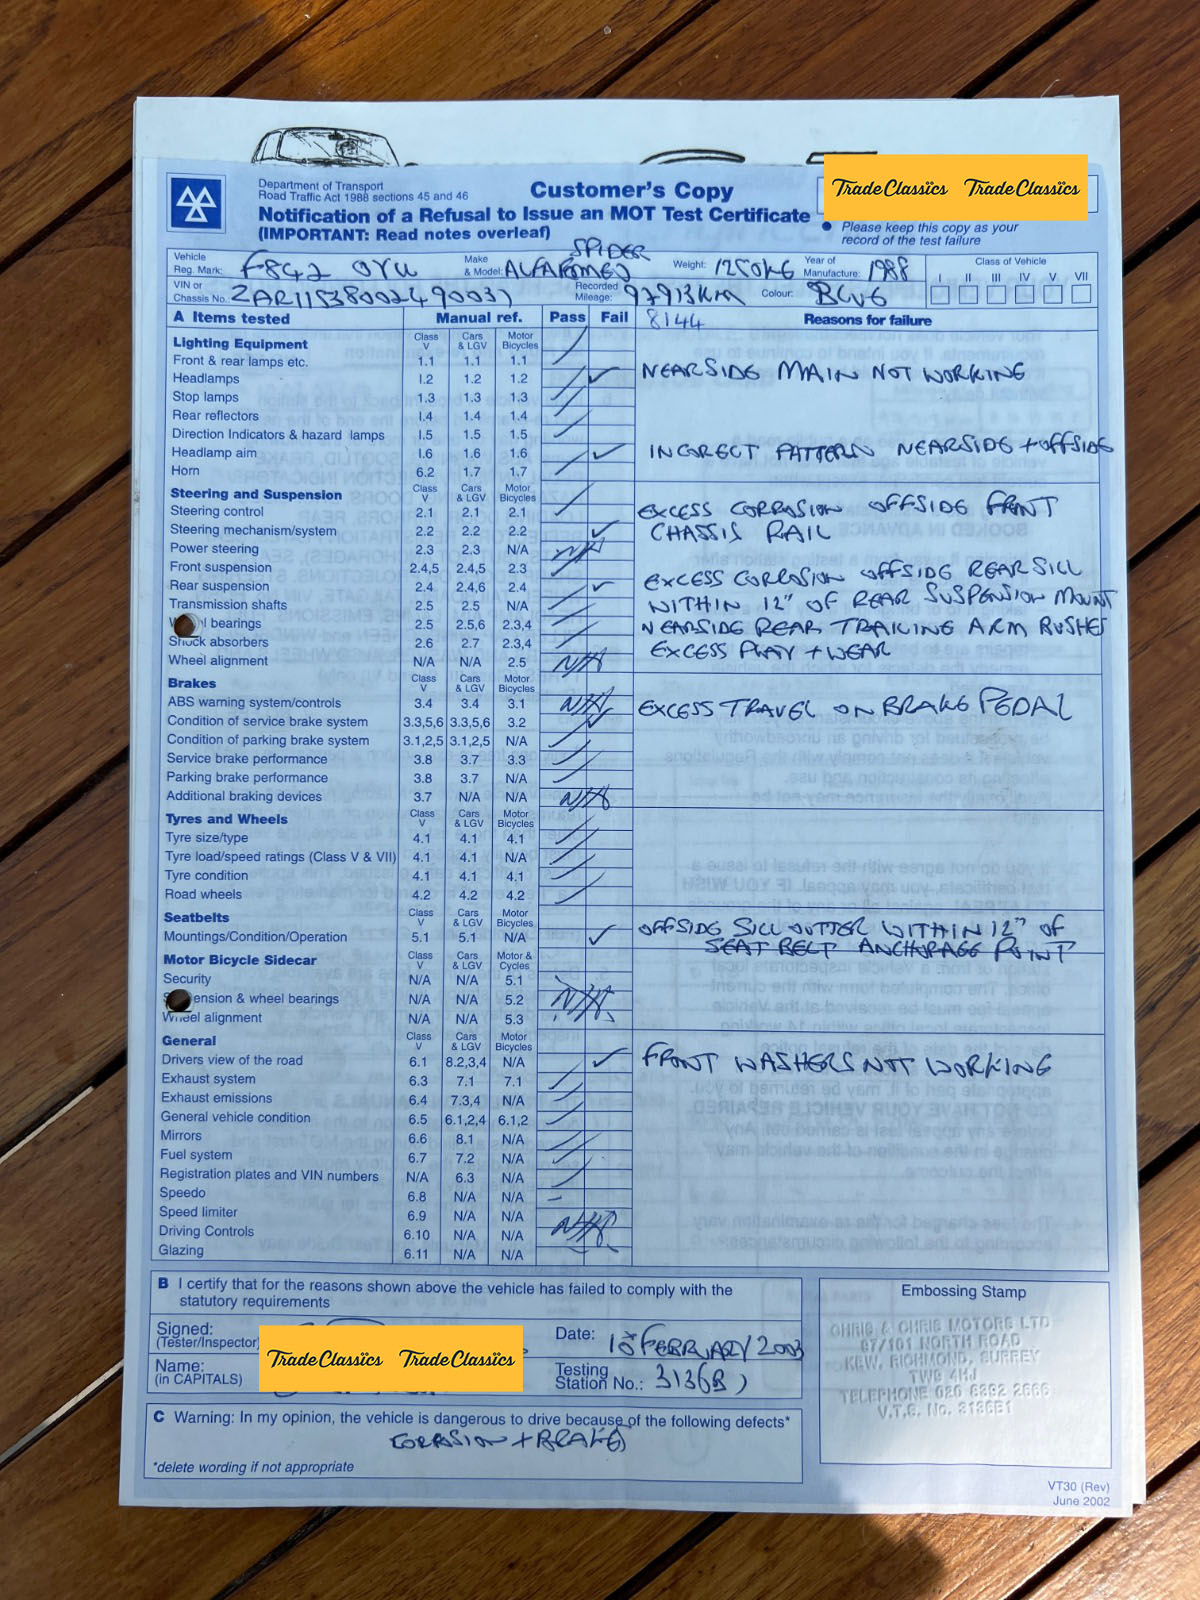 Department of Transport
Road Traffic Act 1988 sections 45 and 46
Customer's Copy
Notification of a Refusal to Issue an MOT Test Certificate
(IMPORTANT: Read notes overleaf)
TradeClassics TradeClassics
• Please keep this copy as your
record of the test failure
Vehicle Reg. Mark: F842 OYU Make & Model: ALFAROMEO SPIDER Weight: 1250KG Year of Manufacture: 1988 Class of Vehicle
I II III IV V VII
VIN or Chassis No. ZAR11538002490037 Recorded Mileage: 97913KM Colour: BLUE
A Items tested Manual ref. Pass Fail 8144 Reasons for failure
Lighting Equipment Class V Cars & LGV Motor Bicycles
Front & rear lamps etc. 1.1 1.1 1.1
Headlamps 1.2 1.2 1.2 NEARSIDE MAIN NOT WORKING
Stop lamps 1.3 1.3 1.3
Rear reflectors 1.4 1.4 1.4
Direction Indicators & hazard lamps 1.5 1.5 1.5
Headlamp aim 1.6 1.6 1.6 INCORECT PATTERN NEARSIDE + OFFSIDE
Horn 6.2 1.7 1.7
Steering and Suspension Class V Cars & LGV Motor Bicycles
Steering control 2.1 2.1 2.1 EXCESS CORROSION OFFSIDE FRONT
Steering mechanism/system 2.2 2.2 2.2 CHASSIS RAIL
Power steering 2.3 2.3 N/A N/A
Front suspension 2.4,5 2.4,5 2.3
Rear suspension 2.4 2.4,6 2.4 EXCESS CORROSION OFFSIDE REAR SILL
Transmission shafts 2.5 2.5 N/A WITHIN 12" OF REAR SUSPENSION MOUNT
bearings 2.5 2.5,6 2.3,4 NEARSIDE REAR TRAILING ARM BUSHES
Shock absorbers 2.6 2.7 2.3,4 EXCESS PLAY + WEAR
Wheel alignment N/A N/A 2.5 N/A
Brakes Class V Cars & LGV Motor Bicycles
ABS warning system/controls 3.4 3.4 3.1 N/A EXCESS TRAVEL ON BRAKE PEDAL
Condition of service brake system 3.3,5,6 3.3,5,6 3.2
Condition of parking brake system 3.1,2,5 3.1,2,5 N/A
Service brake performance 3.8 3.7 3.3
Parking brake performance 3.8 3.7 N/A
Additional braking devices 3.7 N/A N/A N/A
Tyres and Wheels Class V Cars & LGV Motor Bicycles
Tyre size/type 4.1 4.1 4.1
Tyre load/speed ratings (Class V & VII) 4.1 4.1 N/A
Tyre condition 4.1 4.1 4.1
Road wheels 4.2 4.2 4.2
Seatbelts Class V Cars & LGV Motor Bicycles
Mountings/Condition/Operation 5.1 5.1 N/A OFFSIDE SILL OUTTER WITHIN 12" OF
SEAT BELT ANCHORAGE POINT
Motor Bicycle Sidecar Class V Cars & LGV Motor & Cycles
Security N/A N/A 5.1
ension & wheel bearings N/A N/A 5.2 N/A
Wheel alignment N/A N/A 5.3
General Class V Cars & LGV Motor Bicycles
Drivers view of the road 6.1 8.2,3,4 N/A FRONT WASHERS NOT WORKING
Exhaust system 6.3 7.1 7.1
Exhaust emissions 6.4 7.3,4 N/A
General vehicle condition 6.5 6.1,2,4 6.1,2
Mirrors 6.6 8.1 N/A
Fuel system 6.7 7.2 N/A
Registration plates and VIN numbers N/A 6.3 N/A
Speedo 6.8 N/A N/A
Speed limiter 6.9 N/A N/A
Driving Controls 6.10 N/A N/A N/A
Glazing 6.11 N/A N/A
B I certify that for the reasons shown above the vehicle has failed to comply with the
statutory requirements
Signed: (Tester/Inspector) Date: FEBRUARY 2003
TradeClassics TradeClassics
Name: (in CAPITALS) Testing Station No.: 3136B1
Embossing Stamp
CHRIS & CHRIS MOTORS LTD
97/101 NORTH ROAD
KEW, RICHMOND, SURREY
TW9 4HJ
TELEPHONE 020 8392 2666
V.T.S. No. 3136B1
C Warning: In my opinion, the vehicle is dangerous to drive because of the following defects*
CORROSION + BRAKES
*delete wording if not appropriate
VT30 (Rev)
June 2002